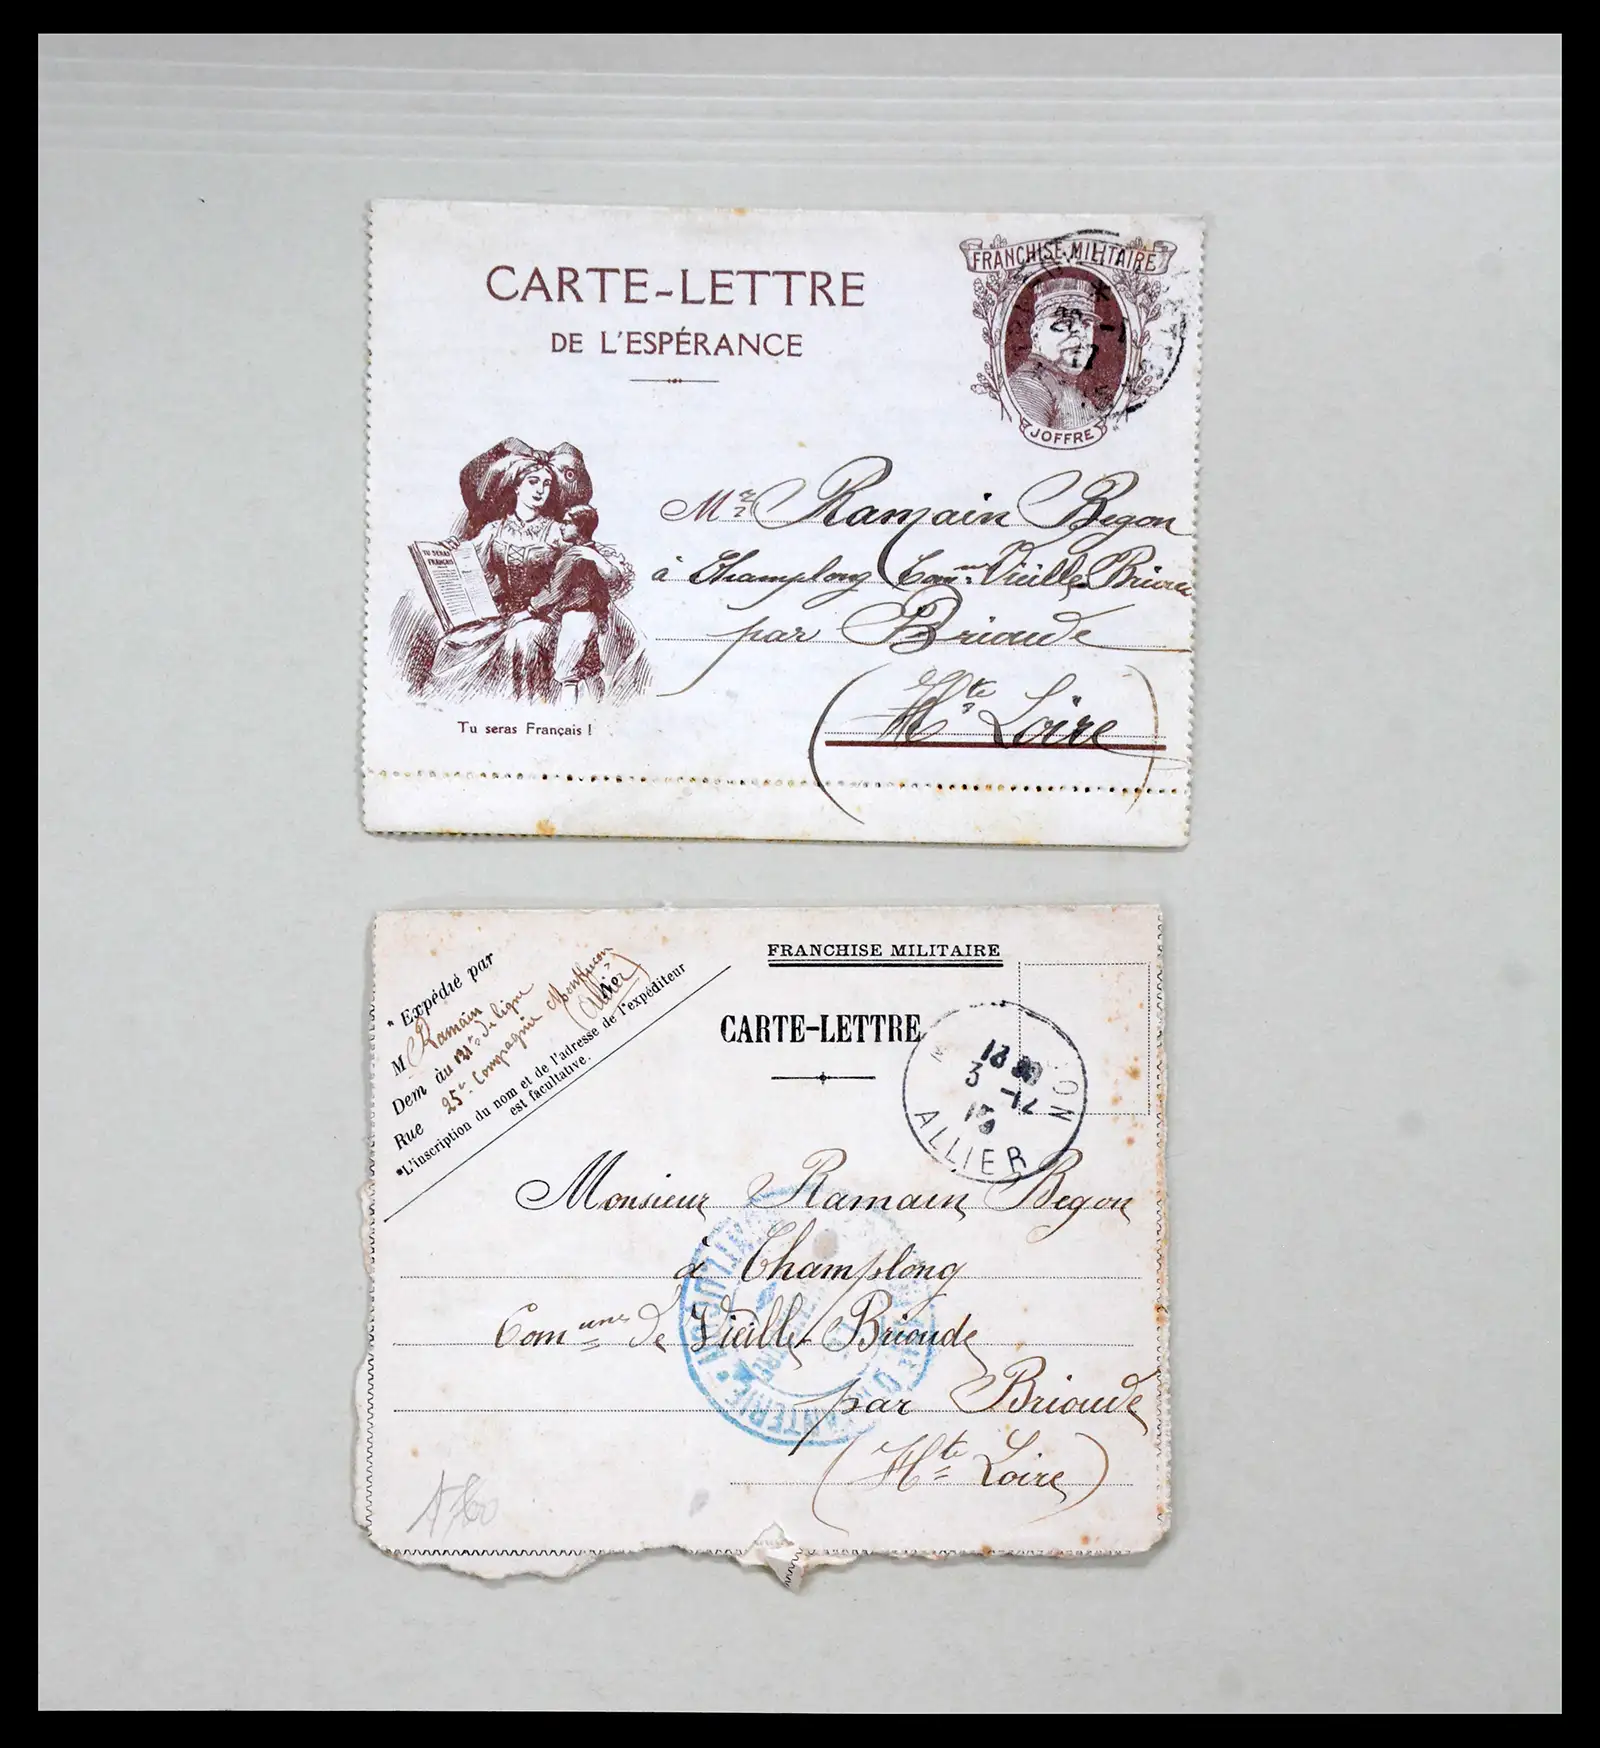 CARTE-LETTRE
DE L'ESPÉRANCE
FRANCHISE MILITAIRE
JOFFRE
TU SERAS
FRANÇAIS
Mr Ramain Begon
à Champlong Comne Vieille Brioude
par Brioude
(Hte Loire)
Tu seras Français !
FRANCHISE MILITAIRE
CARTE-LETTRE
* Expédié par
M Ramain
Dem au 131e de ligne
Rue 25e Compagnie Montluçon
(Allier)
*L'inscription du nom et de l'adresse de l'expéditeur
est facultative.
ALLIER
Monsieur Ramain Begon
à Champlong
Commune de Vieille Brioude
par Brioude
(Hte Loire)